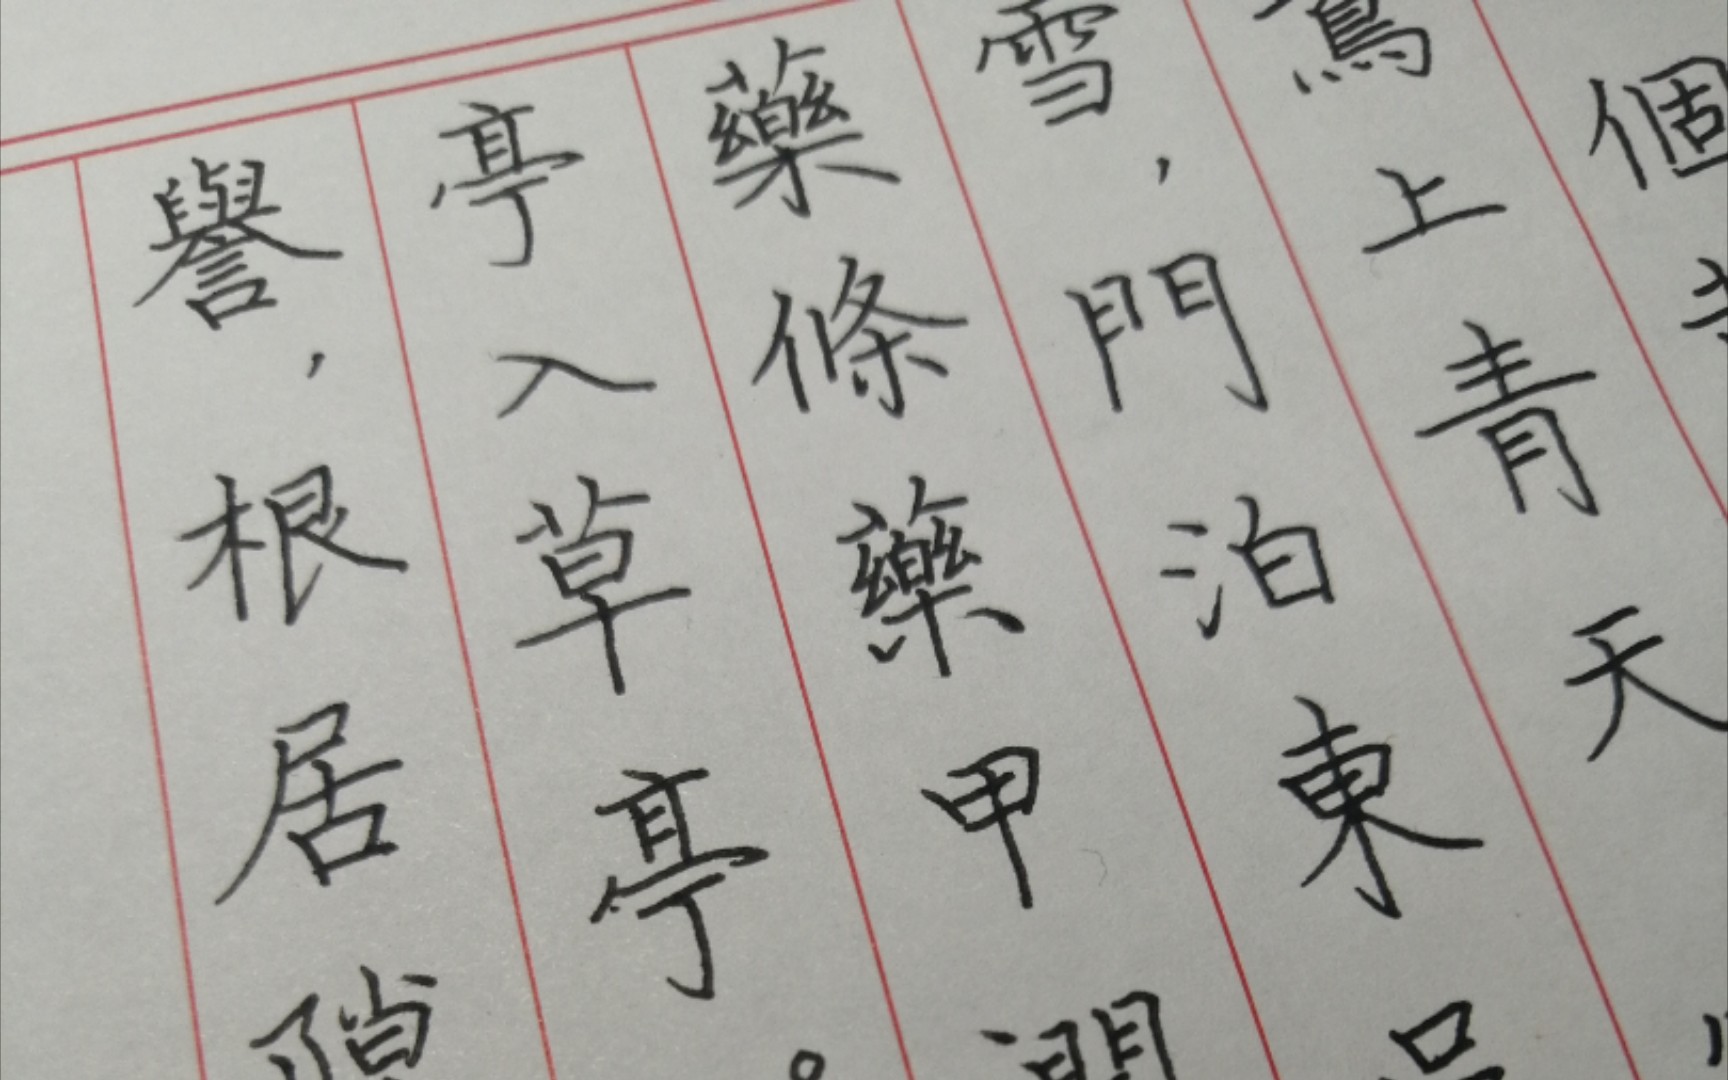 個
鷺上青天
雪，門泊東吳
藥條藥甲潤
亭入草亭。
譽，根居隙